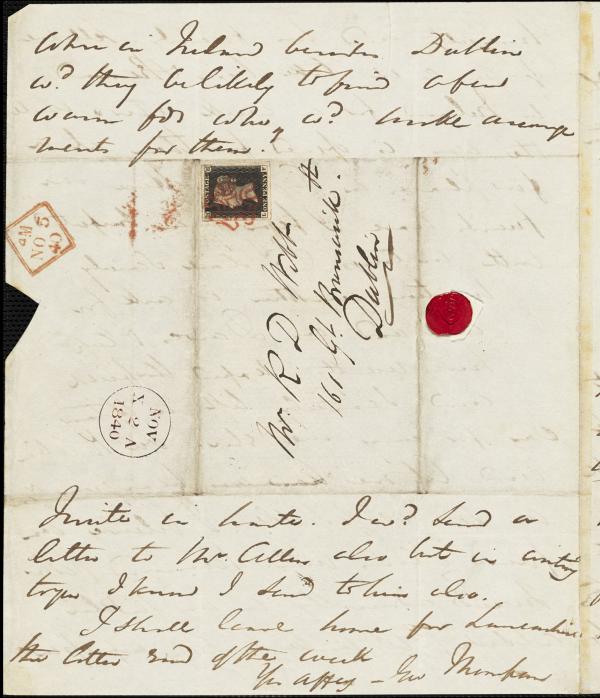 When in Ireland besides Dublin
wd. they be likely to find a few
warm fds who wd. make arrange
ments for them?
POSTAGE
ONE PENNY
AM
NO 5
40
Mr. R. D. Webb
161 Gt. Brunswick St.
Dublin
NOV
X 2 A
1840
I write in haste. I wd. send a
letter to Mr. Allen also but in writing
to you I know I send to him also.
I shall leave home for Lancashire
the latter end of the week
Yrs affecy - Geo Thompson